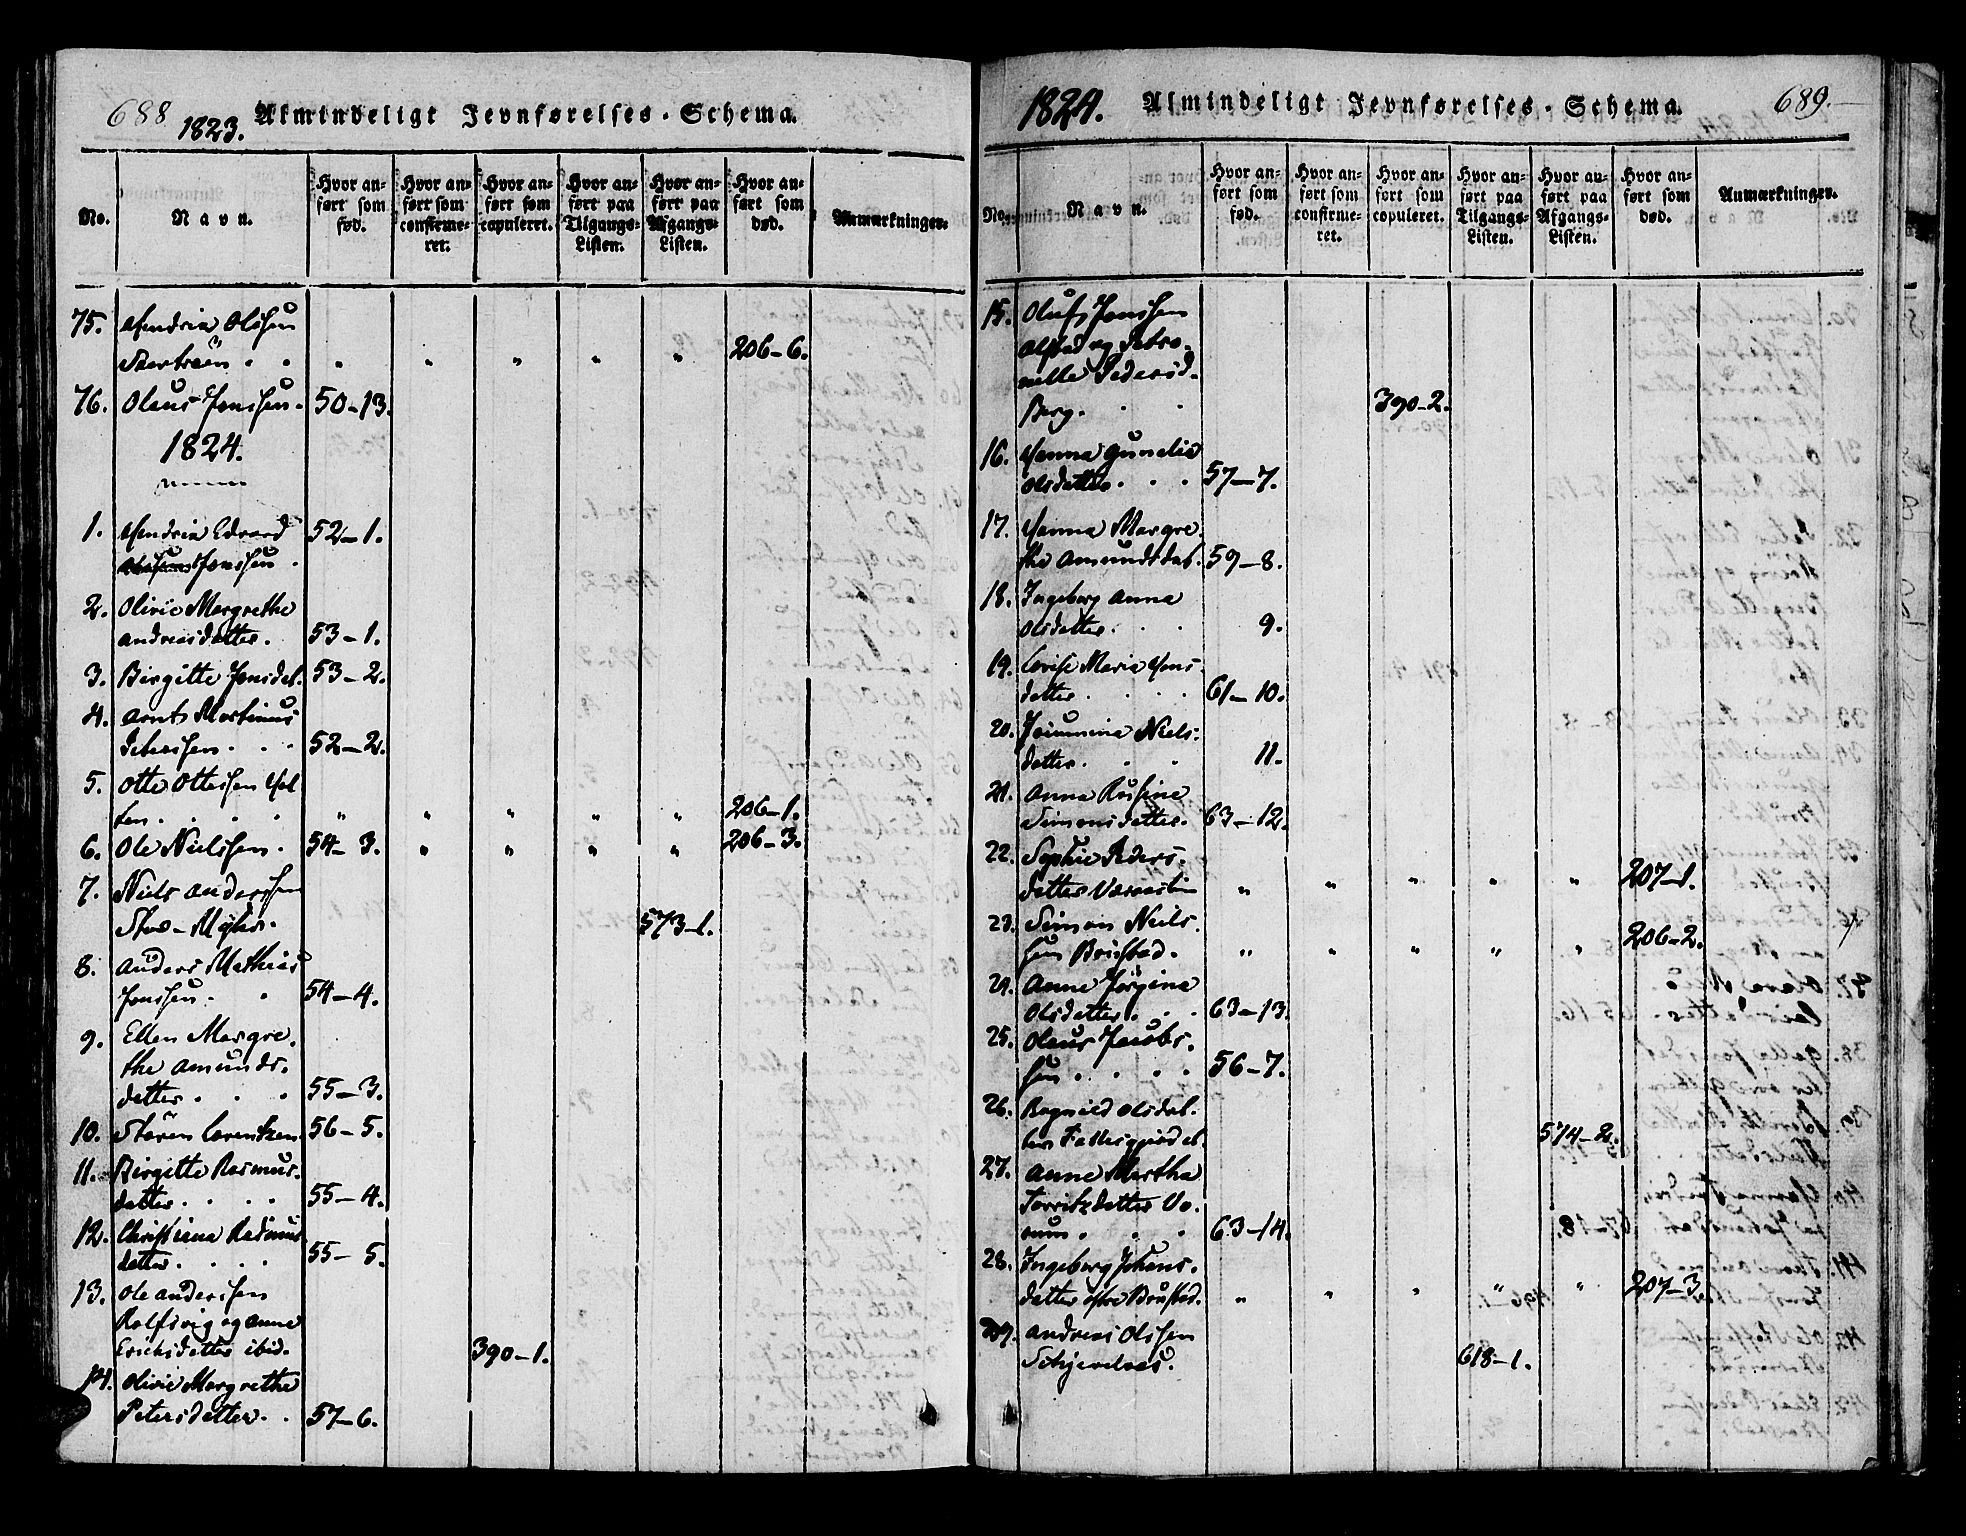 688 1823. Almindeligt Jevnførelses-Schema.
No. Navn. Hvor anført som fød. Hvor anført som confirmeret. Hvor anført som copuleret. Hvor anført paa Tilgangs-Listen. Hvor anført paa Afgangs-Listen. Hvor anført som død. Anmærkninger.
75. Hendrix Olssen
" " " " " 206-6.
76. Olaus Jonssen. 50-13.
1824.
1. Hendrix Edvard 52-1.
Jonssen.
2. Olivie Margrethe
Andreasdatter. 53-1.
3. Birgitte Jonsdat. 53-2.
4. Arnt Martinus
Peterssen. 52-2.
5. Otte Ottessen Hol
ten. " " " " " 206-1.
6. Ole Nielssen. 54-3. " " " " 206-3.
7. Niels Anderssen
573-1.
8. Anders Mathias
Jonssen. 54-4.
9. Ellen Margre-
the Amunds-
datter. 55-3.
10. Sören Lorentzen. 56-5.
11. Birgitte Rasmus-
datter. 55-4.
12. Christiana Rasmus
datter. 55-5.
13. Ole Anderssen
Rolfsvig og Anne
Erichsdatter ibid. 390-1.
14. Olivie Margrethe
Petersdatter. 57-6.
1824. Almindeligt Jevnførelses-Schema. 689.
No. Navn. Hvor anført som fød. Hvor anført som confirmeret. Hvor anført som copuleret. Hvor anført paa Tilgangs-Listen. Hvor anført paa Afgangs-Listen. Hvor anført som død. Anmærkninger.
15. Oluf Jonssen
Alstad og Petro-
nelle Pedersd.
Berg. 390-2.
16. Hanna Gunelia
Olsdatter. 57-7.
17. Hanna Margre-
the Amundsdat. 59-8.
18. Ingeborg Anna
Olsdatter. 9.
19. Lovise Maria Hans-
datter. 61-10.
20. Joiumina Niels-
datter. 11.
21. Anna Rusine
Simonsdatter. 63-12.
22. Sophie Peders-
datter " " " " " 207-1.
23. Simon Niels-
sen Brustad. " " " " " 206-2.
24. Anne Jörgina
Olsdatter. 63-13.
25. Olaus Jacobs-
sen. 56-7.
26. Ragnild Olsdat-
ter 574-2.
27. Anne Martha
Torritzdatter Vo-
num. 63-14.
28. Ingeborg Johans-
datter Brustad. " " " " " 207-3.
29. Andreas Olssen
618-1.